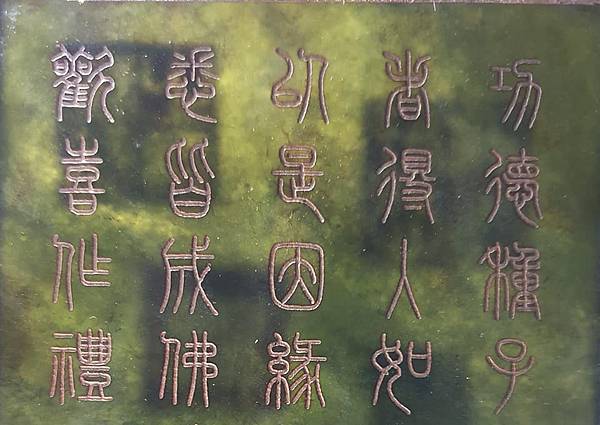 功德種子
者得人如
以是因緣
悉皆成佛
歡喜作禮